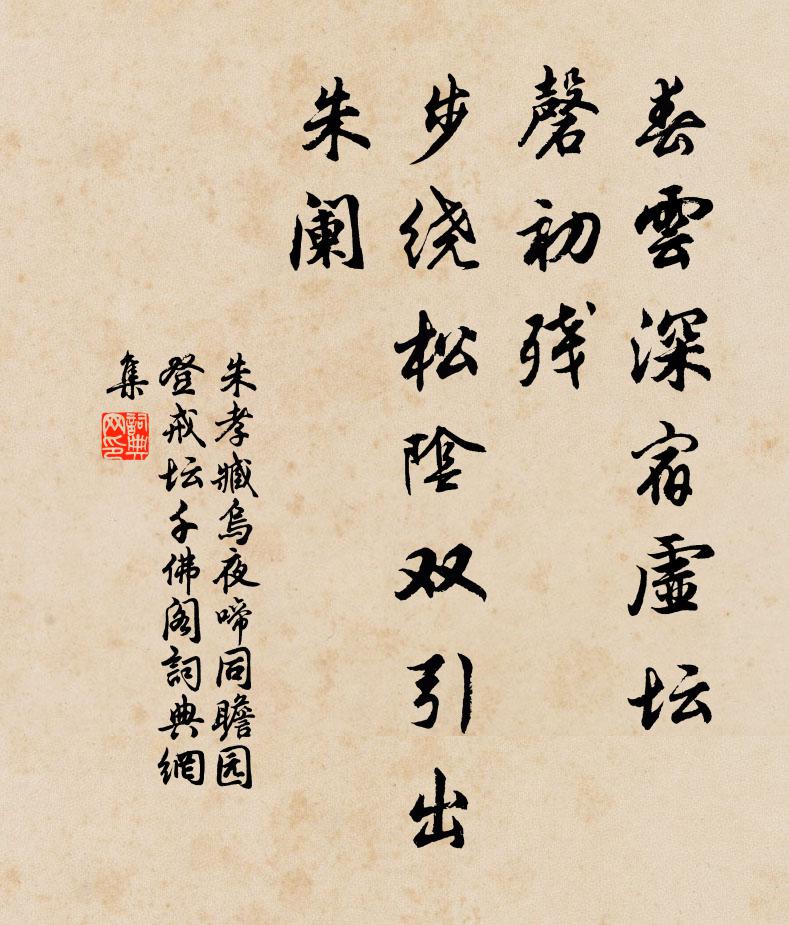 春雲深宿虚坛
磬初残
步绕松陰双引出
朱阑
朱孝臧烏夜啼同瞻园
登戒坛千佛阁詞典網
集
詞典网印